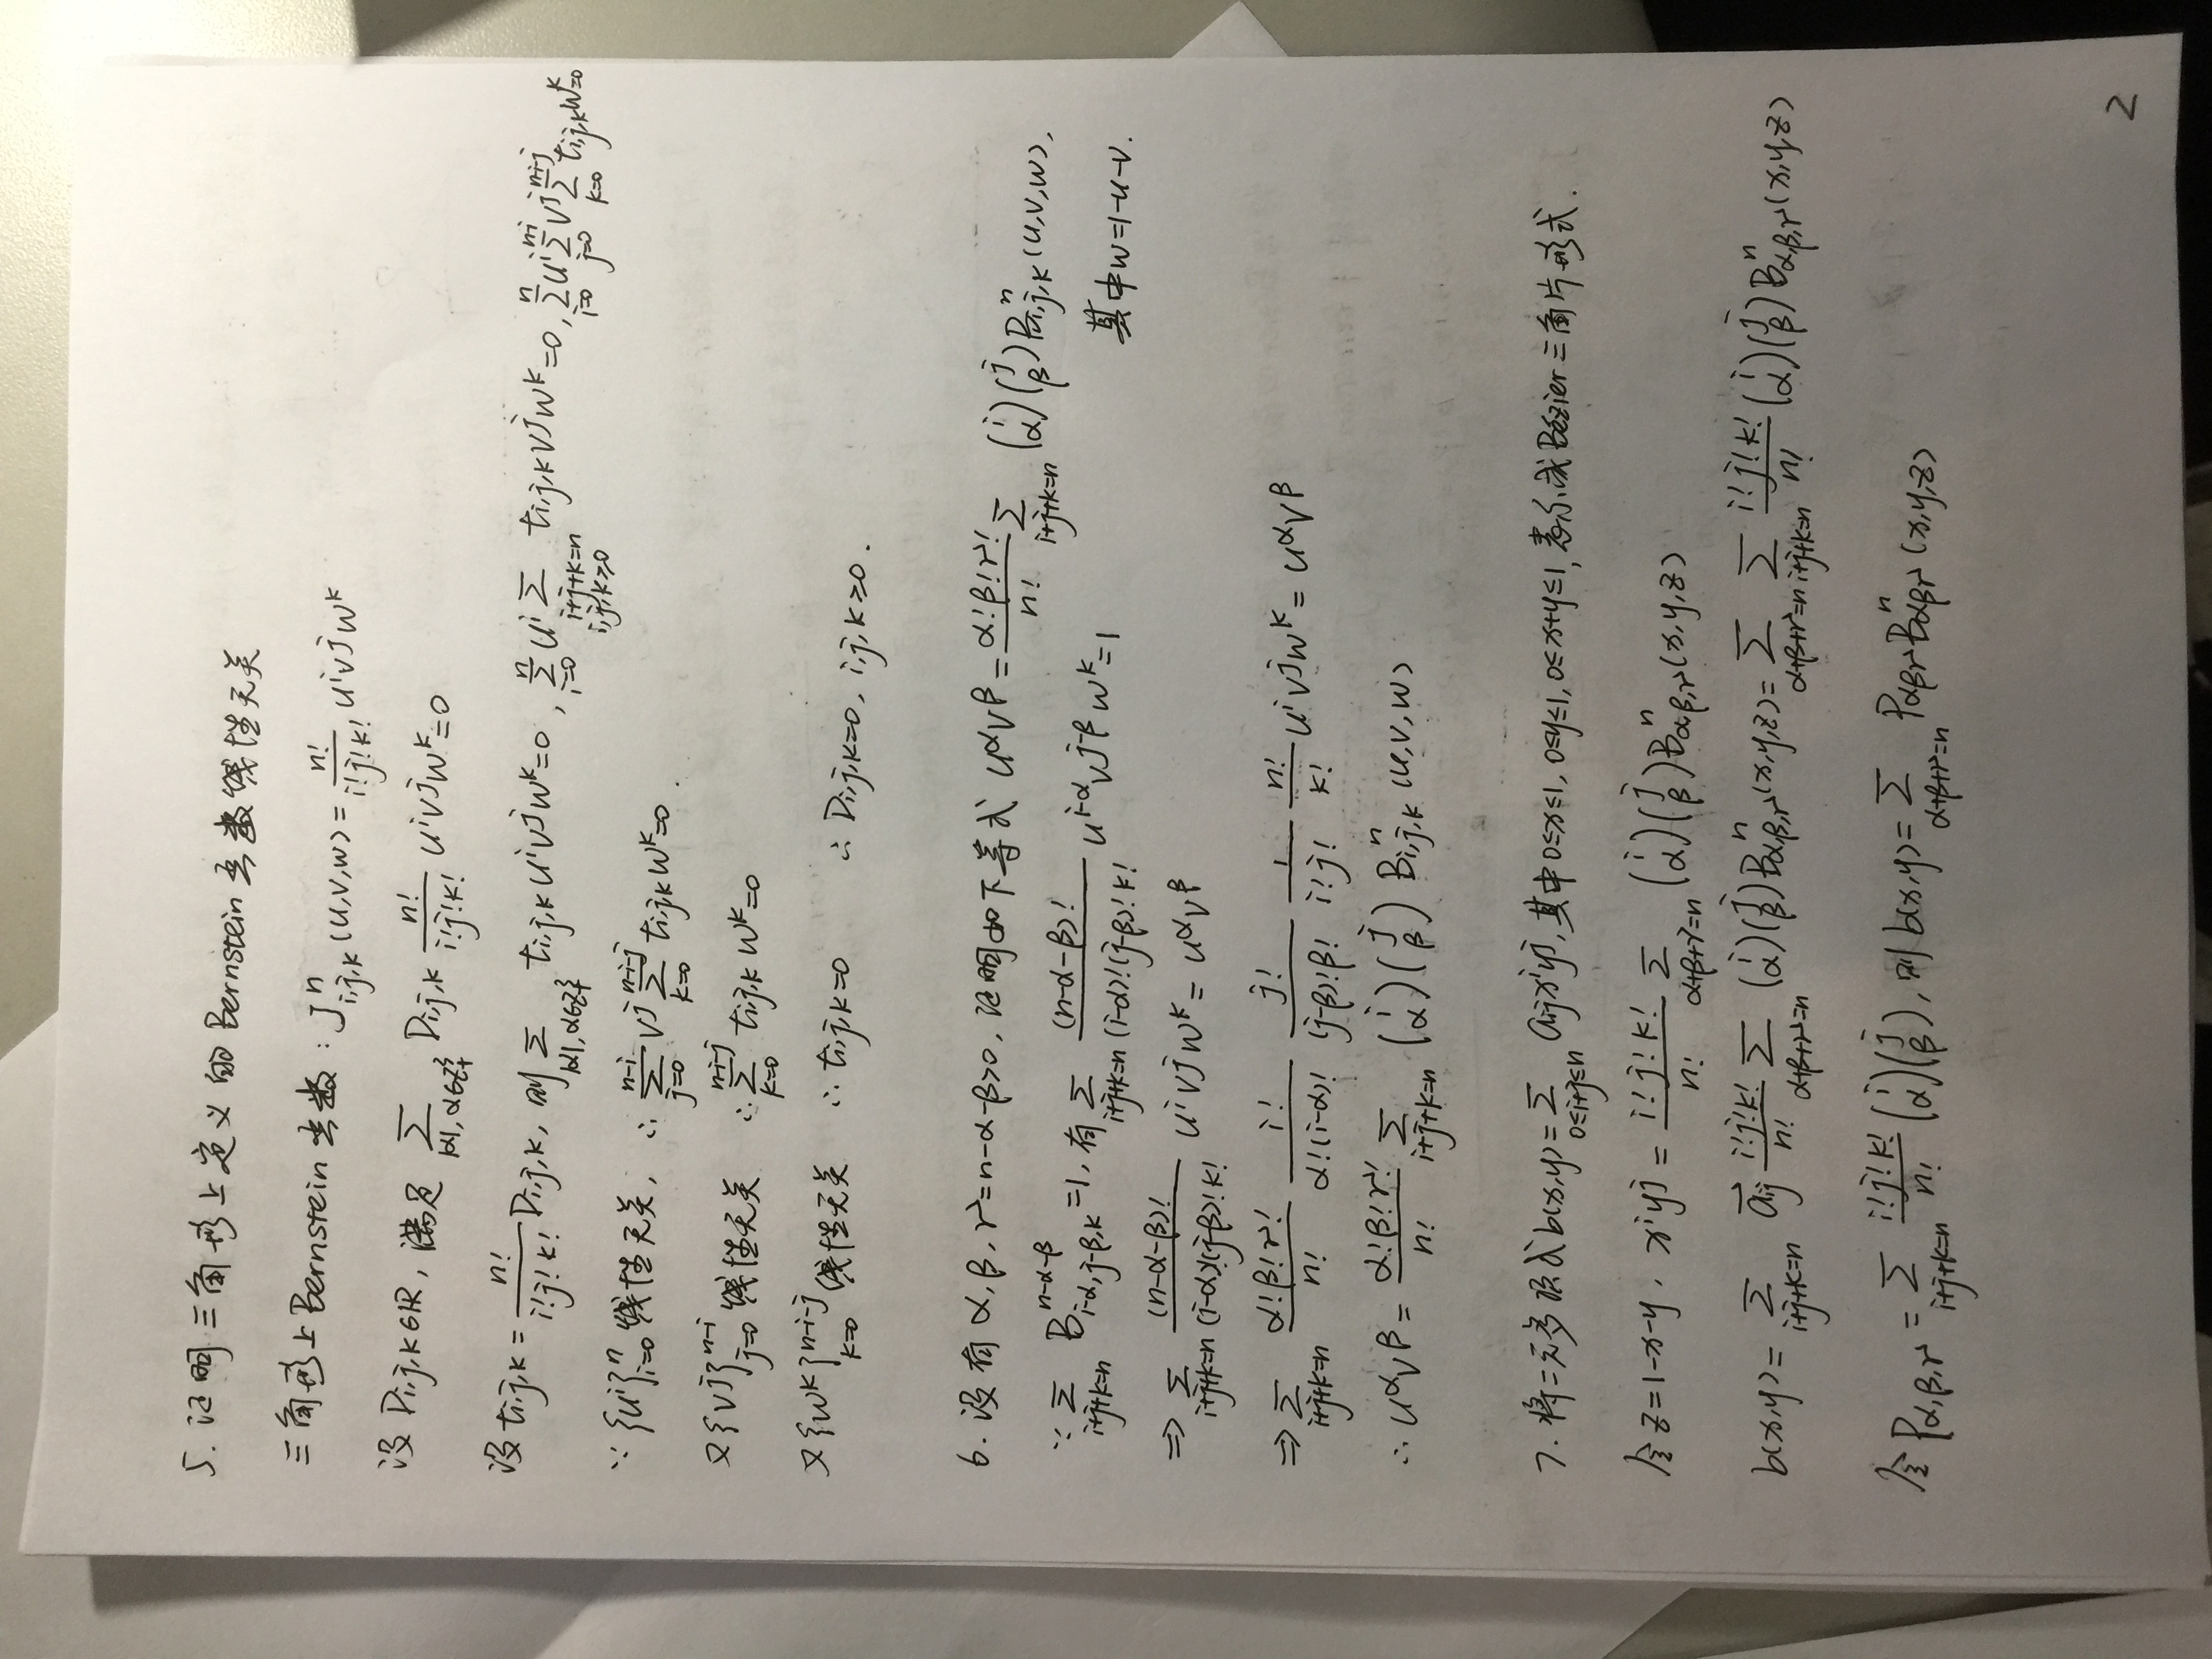 5. 证明三角形上定义的Bernstein函数线性无关
三角形上Bernstein函数: J^n_{i,j,k}(u,v,w) = \frac{n!}{i!j!k!} u^i v^j w^k
设 D_{i,j,k}∈R, 满足 \sum_{|α|, α∈Z_+^3} D_{i,j,k} \frac{n!}{i!j!k!} u^i v^j w^k = 0
设 t_{i,j,k} = \frac{n!}{i!j!k!} D_{i,j,k}, 则 \sum_{|α|, α∈Z_+^3} t_{i,j,k} u^i v^j w^k = 0, \sum_{i=0}^{n} u^i \sum_{i+j+k=n, i,j,k≥0} t_{i,j,k} v^j w^k = 0, \sum_{i=0}^{n} u^i \sum_{j=0}^{n-i} v^j \sum_{k=0}^{n-i-j} t_{i,j,k} w^k = 0
∵ {u^i}_{i=0}^{n} 线性无关, ∴ \sum_{j=0}^{n-i} v^j \sum_{k=0}^{n-i-j} t_{i,j,k} w^k = 0.
又{v^j}_{j=0}^{n-i} 线性无关 ∴ \sum_{k=0}^{n-i-j} t_{i,j,k} w^k = 0
又{w^k}_{k=0}^{n-i-j} 线性无关 ∴ t_{i,j,k} = 0 ∴ D_{i,j,k} = 0, i,j,k ≥ 0.
6. 设有 α, β, r = n-α-β > 0, 证明如下等式 u^α v^β = \frac{α!β!r!}{n!} \sum_{i+j+k=n} \binom{i}{α} \binom{j}{β} B^n_{i,j,k}(u,v,w),
其中 w = 1-u-v.
∵ \sum_{i+j+k=n} B^{n-α-β}_{i-α,j-β,k} = 1, 有 \sum_{i+j+k=n} \frac{(n-α-β)!}{(i-α)!(j-β)!k!} u^{i-α} v^{j-β} w^k = 1
⇒ \sum_{i+j+k=n} \frac{(n-α-β)!}{(i-α)!(j-β)!k!} u^i v^j w^k = u^α v^β
⇒ \sum_{i+j+k=n} \frac{α!β!r!}{n!} \frac{i!}{α!(i-α)!} \frac{j!}{(j-β)!β!} \frac{1}{i!j!} \frac{n!}{k!} u^i v^j w^k = u^α v^β
∴ u^α v^β = \frac{α!β!r!}{n!} \sum_{i+j+k=n} \binom{i}{α} \binom{j}{β} B^n_{i,j,k}(u,v,w)
7. 将二元多项式 b(x,y) = \sum_{0≤i+j≤n} a_{ij} x^i y^j, 其中 0≤x≤1, 0≤y≤1, 0≤x+y≤1, 表示成Bézier三角片形式.
令 z = 1-x-y, x^i y^j = \frac{i!j!k!}{n!} \sum_{α+β+r=n} \binom{i}{α} \binom{j}{β} B^n_{α,β,r}(x,y,z)
b(x,y) = \sum_{i+j+k=n} \vec{a}_{ij} \frac{i!j!k!}{n!} \sum_{α+β+r=n} \binom{i}{α} \binom{j}{β} B^n_{α,β,r}(x,y,z) = \sum_{α+β+r=n} \sum_{i+j+k=n} \frac{i!j!k!}{n!} \binom{i}{α} \binom{j}{β} B^n_{α,β,r}(x,y,z)
令 P_{α,β,r} = \sum_{i+j+k=n} \frac{i!j!k!}{n!} \binom{i}{α} \binom{j}{β}, 则 b(x,y) = \sum_{α+β+r=n} P_{αβr} B^n_{αβr}(x,y,z)
2